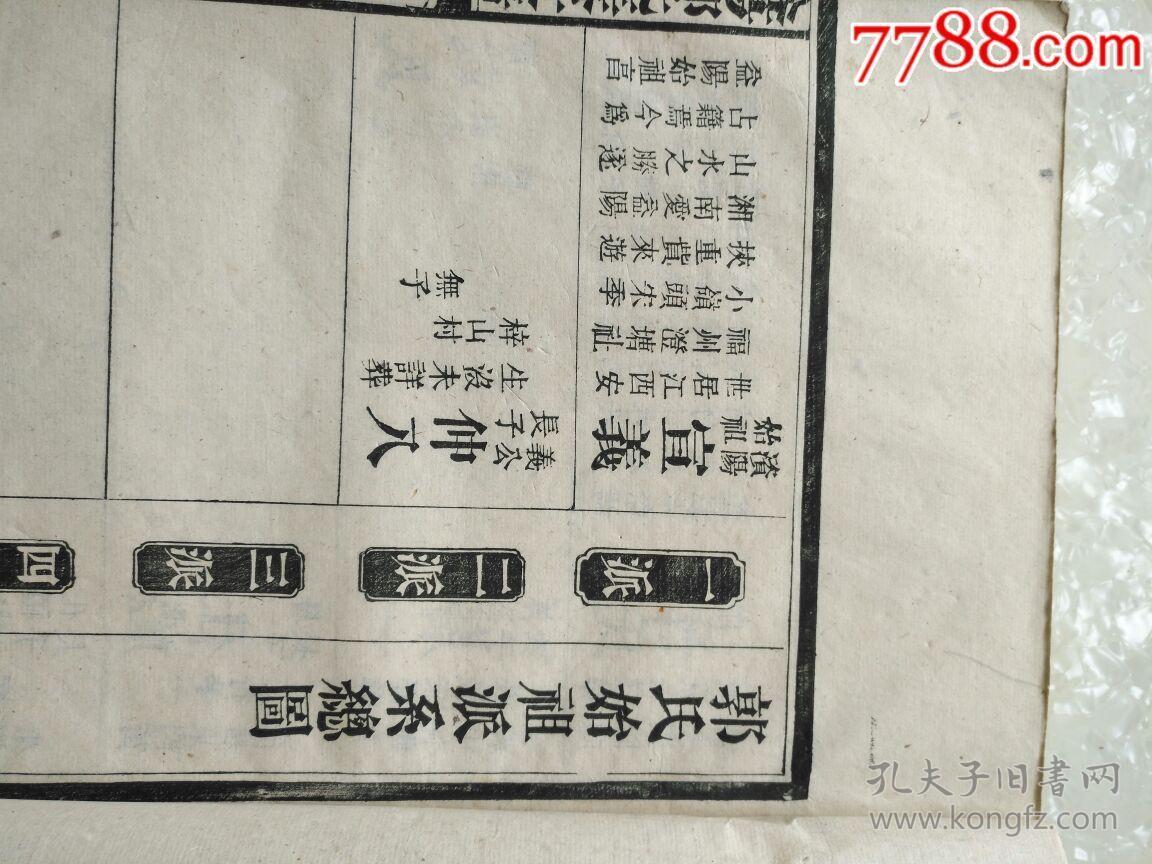 郭氏始祖派系總圖
一派
二派
三派
四
澬陽
始祖
宣義
世居江西安
福州澄塘社
小嶺頭朱季
挾重貲來遊
湘南愛益陽
山水之勝遂
占籍焉今爲
益陽始祖
義公
長子
仲八
生没未詳葬
梓山村
無子
7788.com
孔夫子旧书网
www.kongfz.com